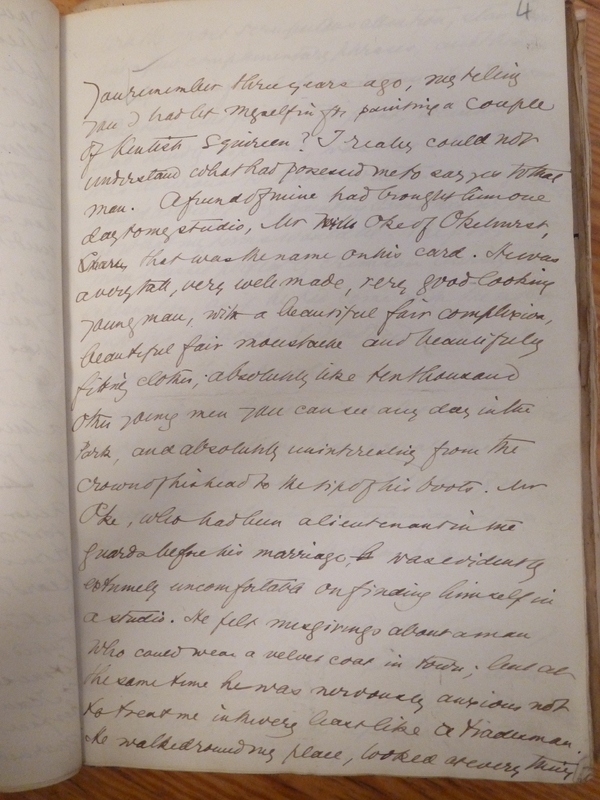 4
You remember three years ago, my telling
you I had let myself in for painting a couple
of Kentish Squireen? I really could not
understand what had possessed me to say yes to that
man. A friend of mine had brought him one
day to my studio, Mr Oke of Okehurst,
that was the name on his card. He was
a very tall, very well made, very good looking
young man, with a beautiful fair complexion,
beautiful fair moustache and beautifully
fitting clothes; absolutely like ten thousand
other young men you can see any day in the
Park, and absolutely uninteresting from the
crown of his head to the tip of his boots. Mr
Oke, who had been a lieutenant in the
Guards before his marriage, was evidently
extremely uncomfortable on finding himself in
a studio. He felt misgivings about a man
who could wear a velvet coat in town; but at
the same time he was nervously anxious not
to treat me in the very least like a tradesman.
He walked round my place, looked at every thing